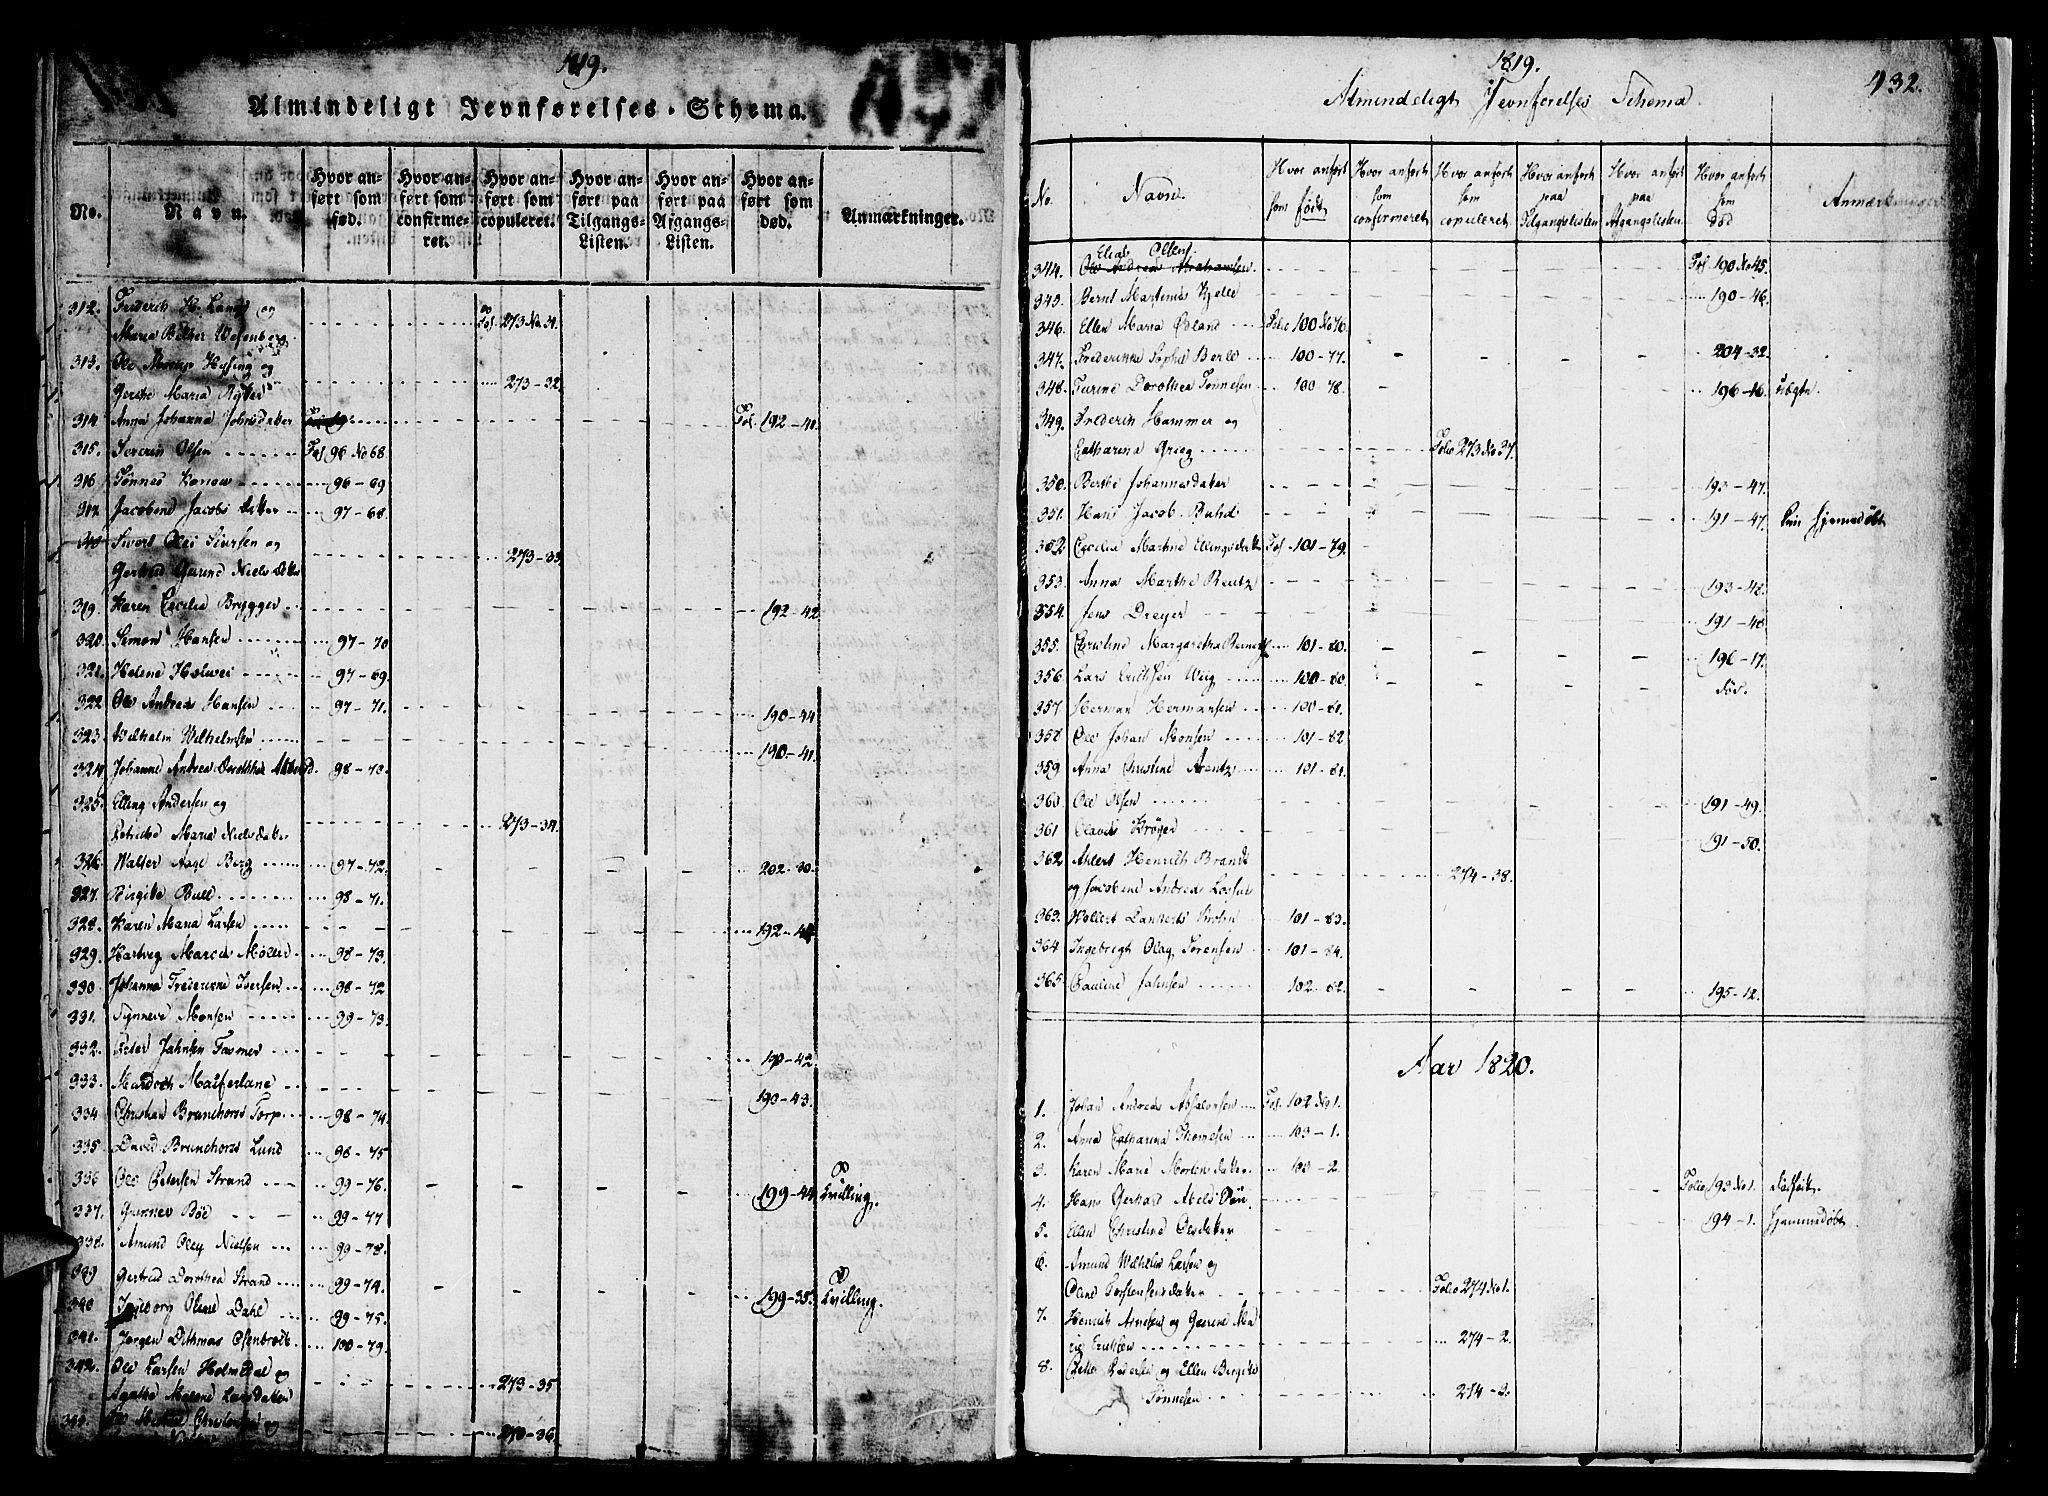 1819.
Almindeligt Jevnførelses-Schema.
No. Navn. Hvor anført som fød. Hvor anført som confirmeret. Hvor anført som copuleret. Hvor anført paa Tilgangs-Listen. Hvor anført paa Afgangs-Listen. Hvor anført som død. Anmærkninger.
312. Frederik H. og
Maria Wesenberg Fol. 273 No 31.
313. Ole Hysing og
Maria 273-32
314 Anna Johanna Johnsdatter Fol. 192-41.
315. Severin Olsen Fol 96 No 68
316 Tønnes 96-69
317 Jacobine Jacobsdatter 97-68.
Siursen og
Gertrud Gurine Nielsdatter 273-33
319. Karen Cecilia Brygger 192-42
320. Simon Hansen 97-70
321. Helene 97-69
322 Ole Andreas Hansen 97-71. 190-44
323 Wilhelm Wilhelmsen 190-41.
324 Johanne Andrea Dorothea 98-70.
325. Elling Andersen og
Maria Nielsdatter 273-34.
326. Walter Aage Berg 97-72. 202-30.
327. Birgitte Bull 98-71.
328. Karen Maria Larsen 192-44
329. Hartvig Marcus Møller 98-73.
330 Johanna Iversen 98-72
331. Synneve Monsen 99-73.
332. Peter Jahnsen 190-42.
333. Murdoch Macferlane 190-43.
334 Christian Brunchorst Torp 98-74.
335. David Brunchorst Lund 98-75
336 Ole Petersen Strand 99-76. 199-44 Tvilling.
337. Gunner Böe 99-77
338. Amund Oley Nielsen 99-78.
339 Gertrud Dorothea Strand 99-74. 199-35. Tvilling.
340 Ingeborg Oline Dahl 99-75.
341. Jørgen Dithmas 100-79.
342. Ole Larsen Holmedal og
Agathe Malene Larsdatter 273-35
Ole Michael Christensen og 273-36.
1819.
Almindeligt Jevnforelses Schema.
432.
No. Navn. Hvor anført som født Hvor anført som confirmeret Hvor anført som copuleret Hvor anført paa Tilgangslisten Hvor anført paa Afgangslisten Hvor anført som Død Anmærkninger
Elias Ollens.
344. Ole Andrea Abrahamsen. Fol. 190 No 45.
345. Bernt Martinus Kjelle 190-46.
346. Ellen Maria Øvland Folio 100 No 76.
347. Frederinne Sophie Berle 100-77. 204-32.
348. Turine Dorothea Tønnesen 100-78. 196-16. uægte
349. Frederik Hammer og
Catharina Grieg Folio 273 No 37.
350. Berthe Johannesdatter 193-47.
351. Hans Jacob Buhd 191-47. hjemmedøbt
352. Cecilia Martine Ellingsdatter Fol. 101-79.
353. Anna Marthe Reutz 193-48.
354. Jens Dreyer 191-48
355. Christine Margaretha 101-80. 196-17.
356 Lars Erichsen Weig 100-80. død.
357 Herman Hermansen 100-81.
358 Ole Johan Monsen 101-82
359. Anna Christine Arentz 101-81.
360. Ole Olsen 191-49.
361 Olaves Krøger 191-50.
362 Ahlert Henrich Brandt
og Jacobine Andrea 274-38.
363. Wollert Danckerts Krohn 101-83.
364 Ingebrigt Olay Sørensen 101-84.
365. Pauline Jahnsen 102-82. 195-12.
Aar 1820.
1. Johan Andreas Absalonsen Fol. 102 No 1.
2. Anna Catharina Thomesen 103-1.
3. Karen Marie Mortensdatter 103-2.
4. Hans Gerhard Abels Søn. Folio 193 No 1. dødfødt.
5. Ellen Christine Olsdatter 194-1. hjemmedøbt
6. Amund Wilhelm Larsen og
Oline Torstensdatter Folio 274 No 1.
7. Henrich Arnesen og Gurine Ma
ria Erichsen 274-2.
8. Petter Pedersen og Ellen Birgitte
Tønnesen 274-3.